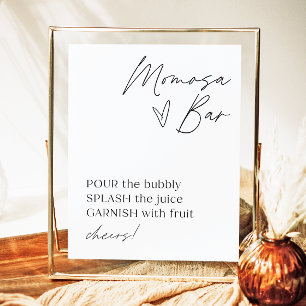 Momosa
Bar
POUR the bubbly
SPLASH the juice
GARNISH with fruit
cheers!